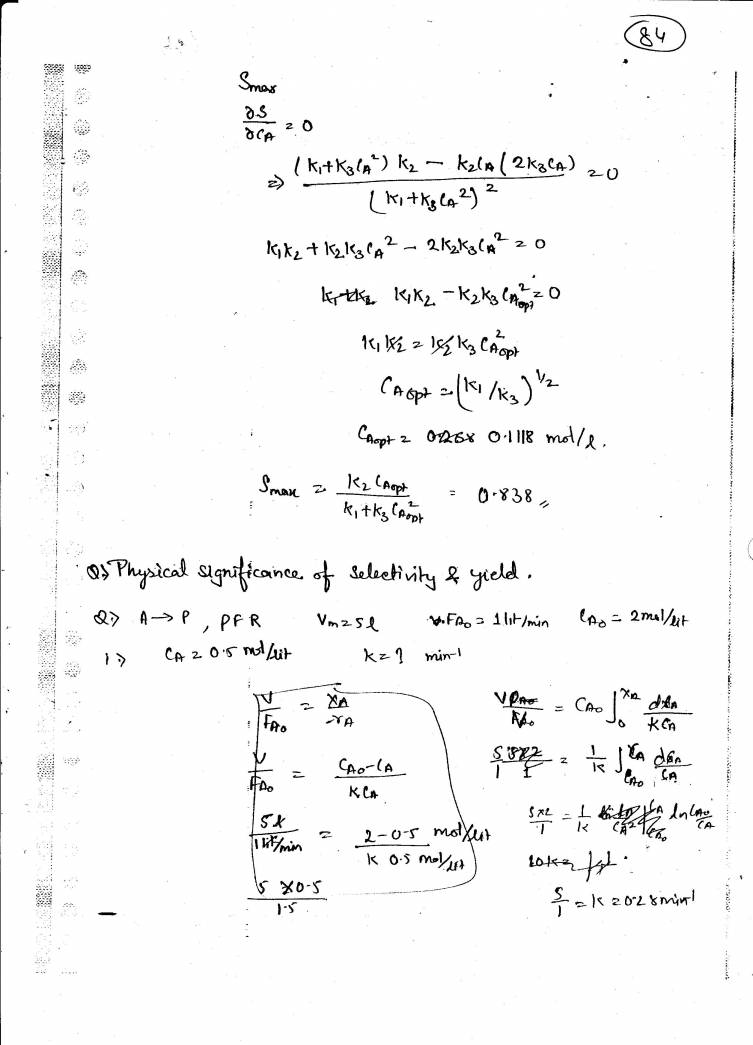 84
Smax
∂S/∂CA = 0
=> ((K1+K3CA²) K2 − K2CA (2K3CA)) / (K1+K3CA²)² = 0
K1K2 + K2K3CA² − 2K2K3CA² = 0
K1K2 − K2K3CAopt² = 0
K1K2 = K2K3CAopt²
CAopt = (K1/K3)^1/2
CAopt = 0.1118 mol/l.
Smax = K2CAopt / (K1+K3CAopt²) = 0.838
Q> Physical significance of selectivity & yield.
Q> A → P, PFR Vm=5l FA0 = 1 lit/min CA0 = 2mol/lit
1> CA = 0.5 mol/lit K=? min-1
V/FA0 = XA/-rA
V/FA0 = (CA0-CA)/KCA
5l/(1 lit/min) = (2-0.5 mol/lit)/(K 0.5 mol/lit)
5 x0.5/1.5
= CA0 ∫0^XA dXA/KCA
= 1/K ∫CA0^CA dCA/CA
5x2/1 = 1/K ln CA0/CA
5/1 = K = 0.28 min-1